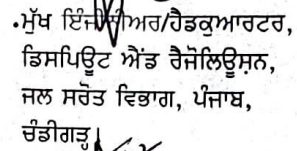 .ਮੁੱਖ ਇੰਜੀਨੀਅਰ/ਹੈਡਕੁਆਰਟਰ,
ਡਿਸਪਿਊਟ ਐਂਡ ਰੈਜੋਲਿਊਸ਼ਨ,
ਜਲ ਸਰੋਤ ਵਿਭਾਗ, ਪੰਜਾਬ,
ਚੰਡੀਗੜ੍ਹ।